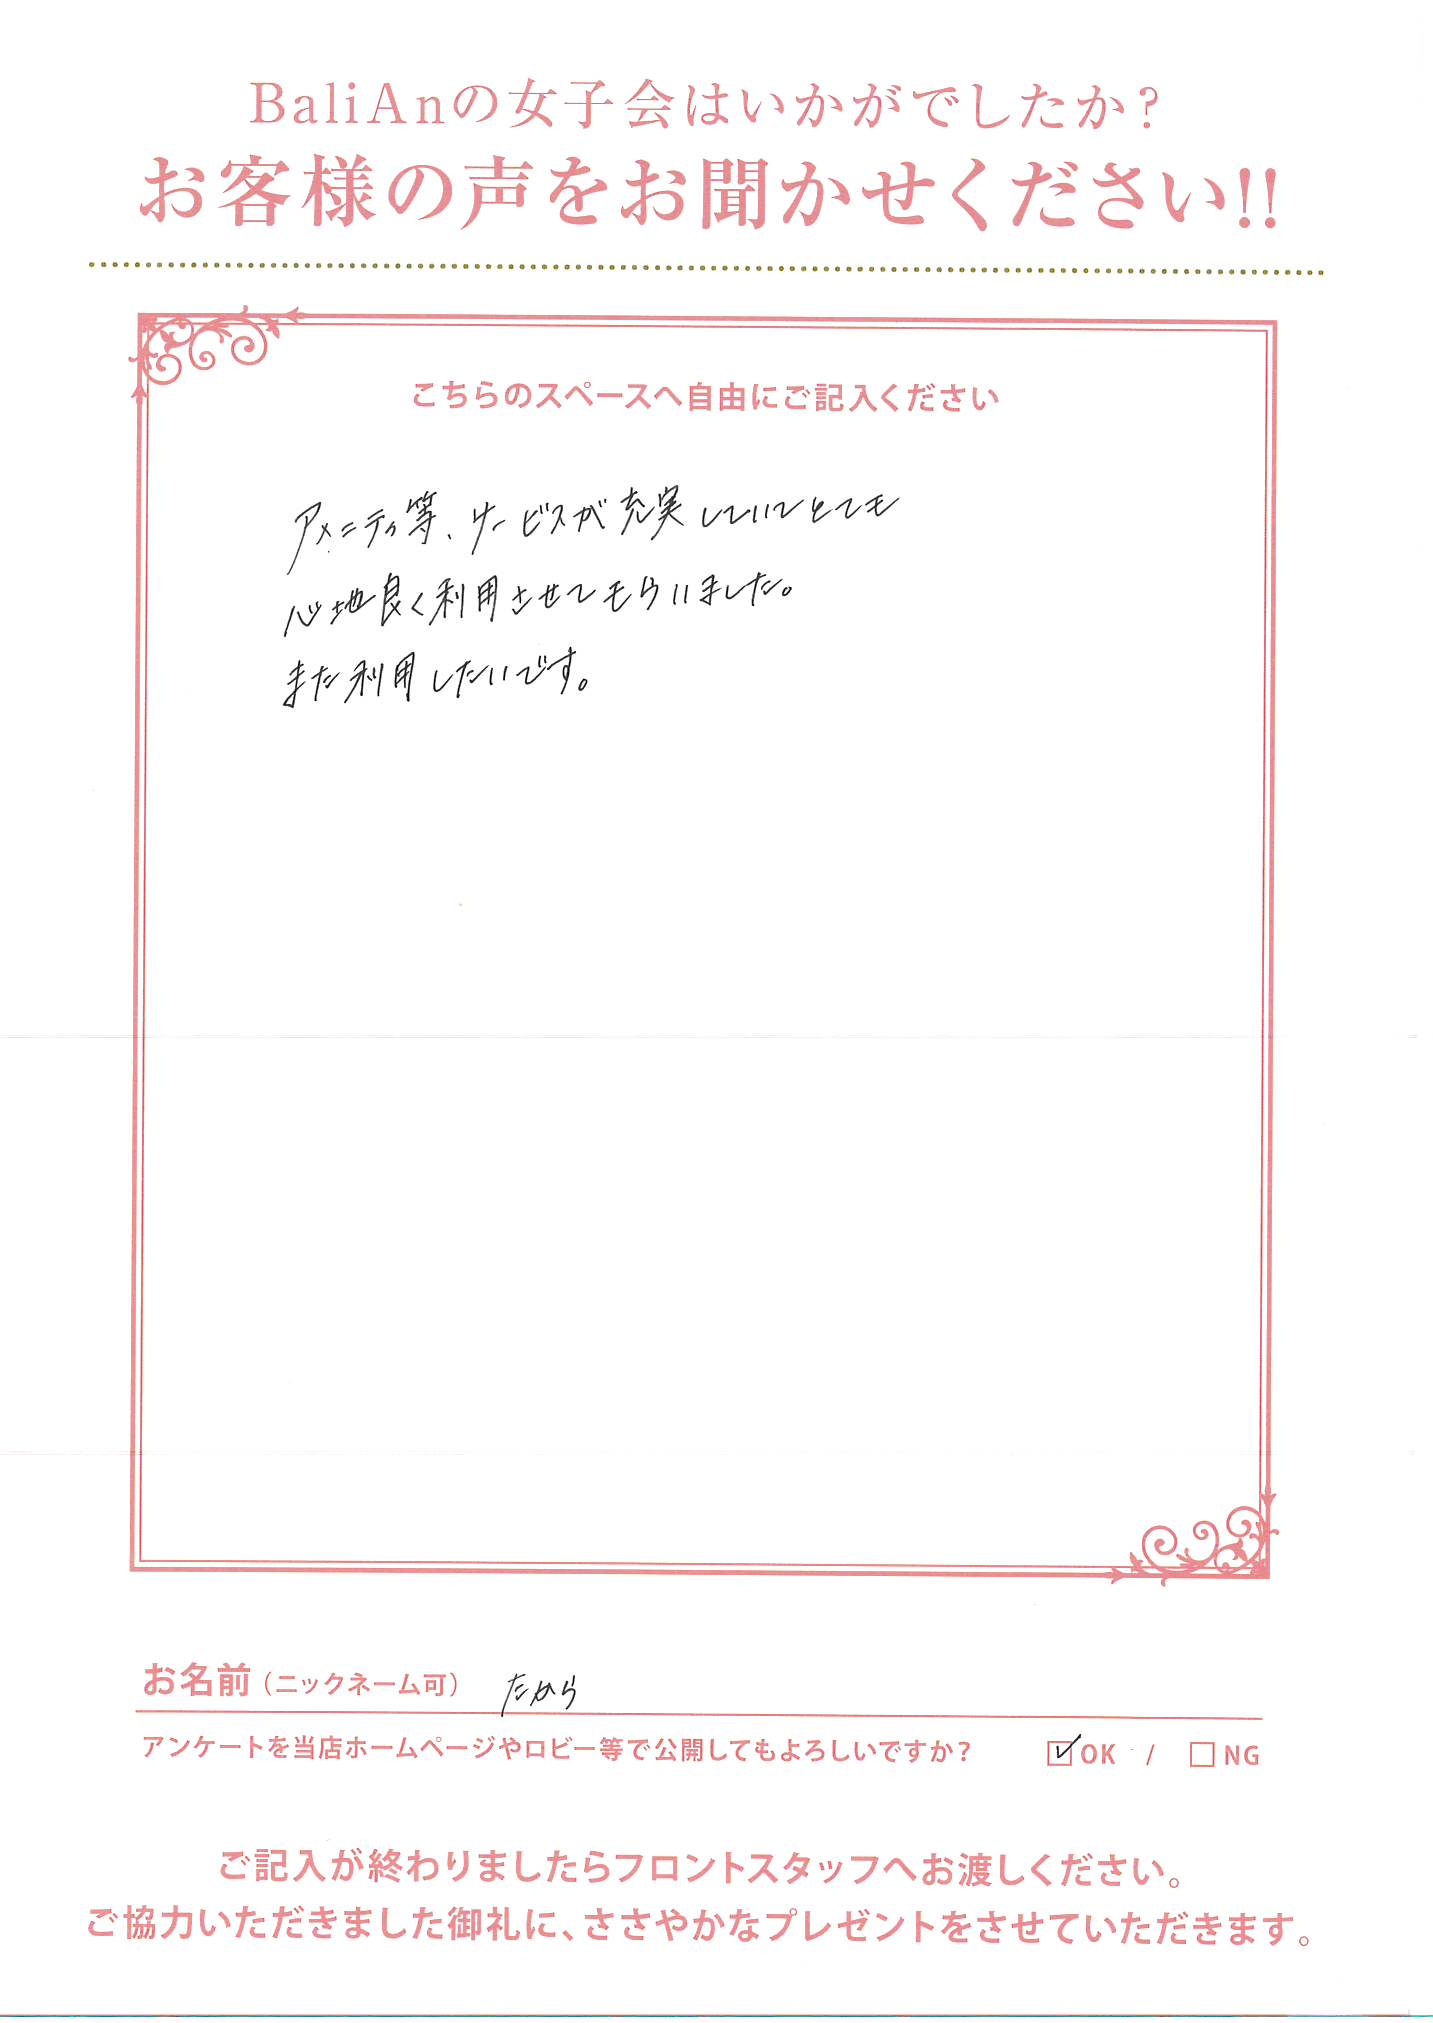 BaliAnの女子会はいかがでしたか?
お客様の声をお聞かせください!!
こちらのスペースへ自由にご記入ください
アメニティ等、サービスが充実していてとても
心地良く利用させてもらいました。
また利用したいです。
お名前（ニックネーム可） たから
アンケートを当店ホームページやロビー等で公開してもよろしいですか? ☑OK / □NG
ご記入が終わりましたらフロントスタッフへお渡しください。
ご協力いただきました御礼に、ささやかなプレゼントをさせていただきます。